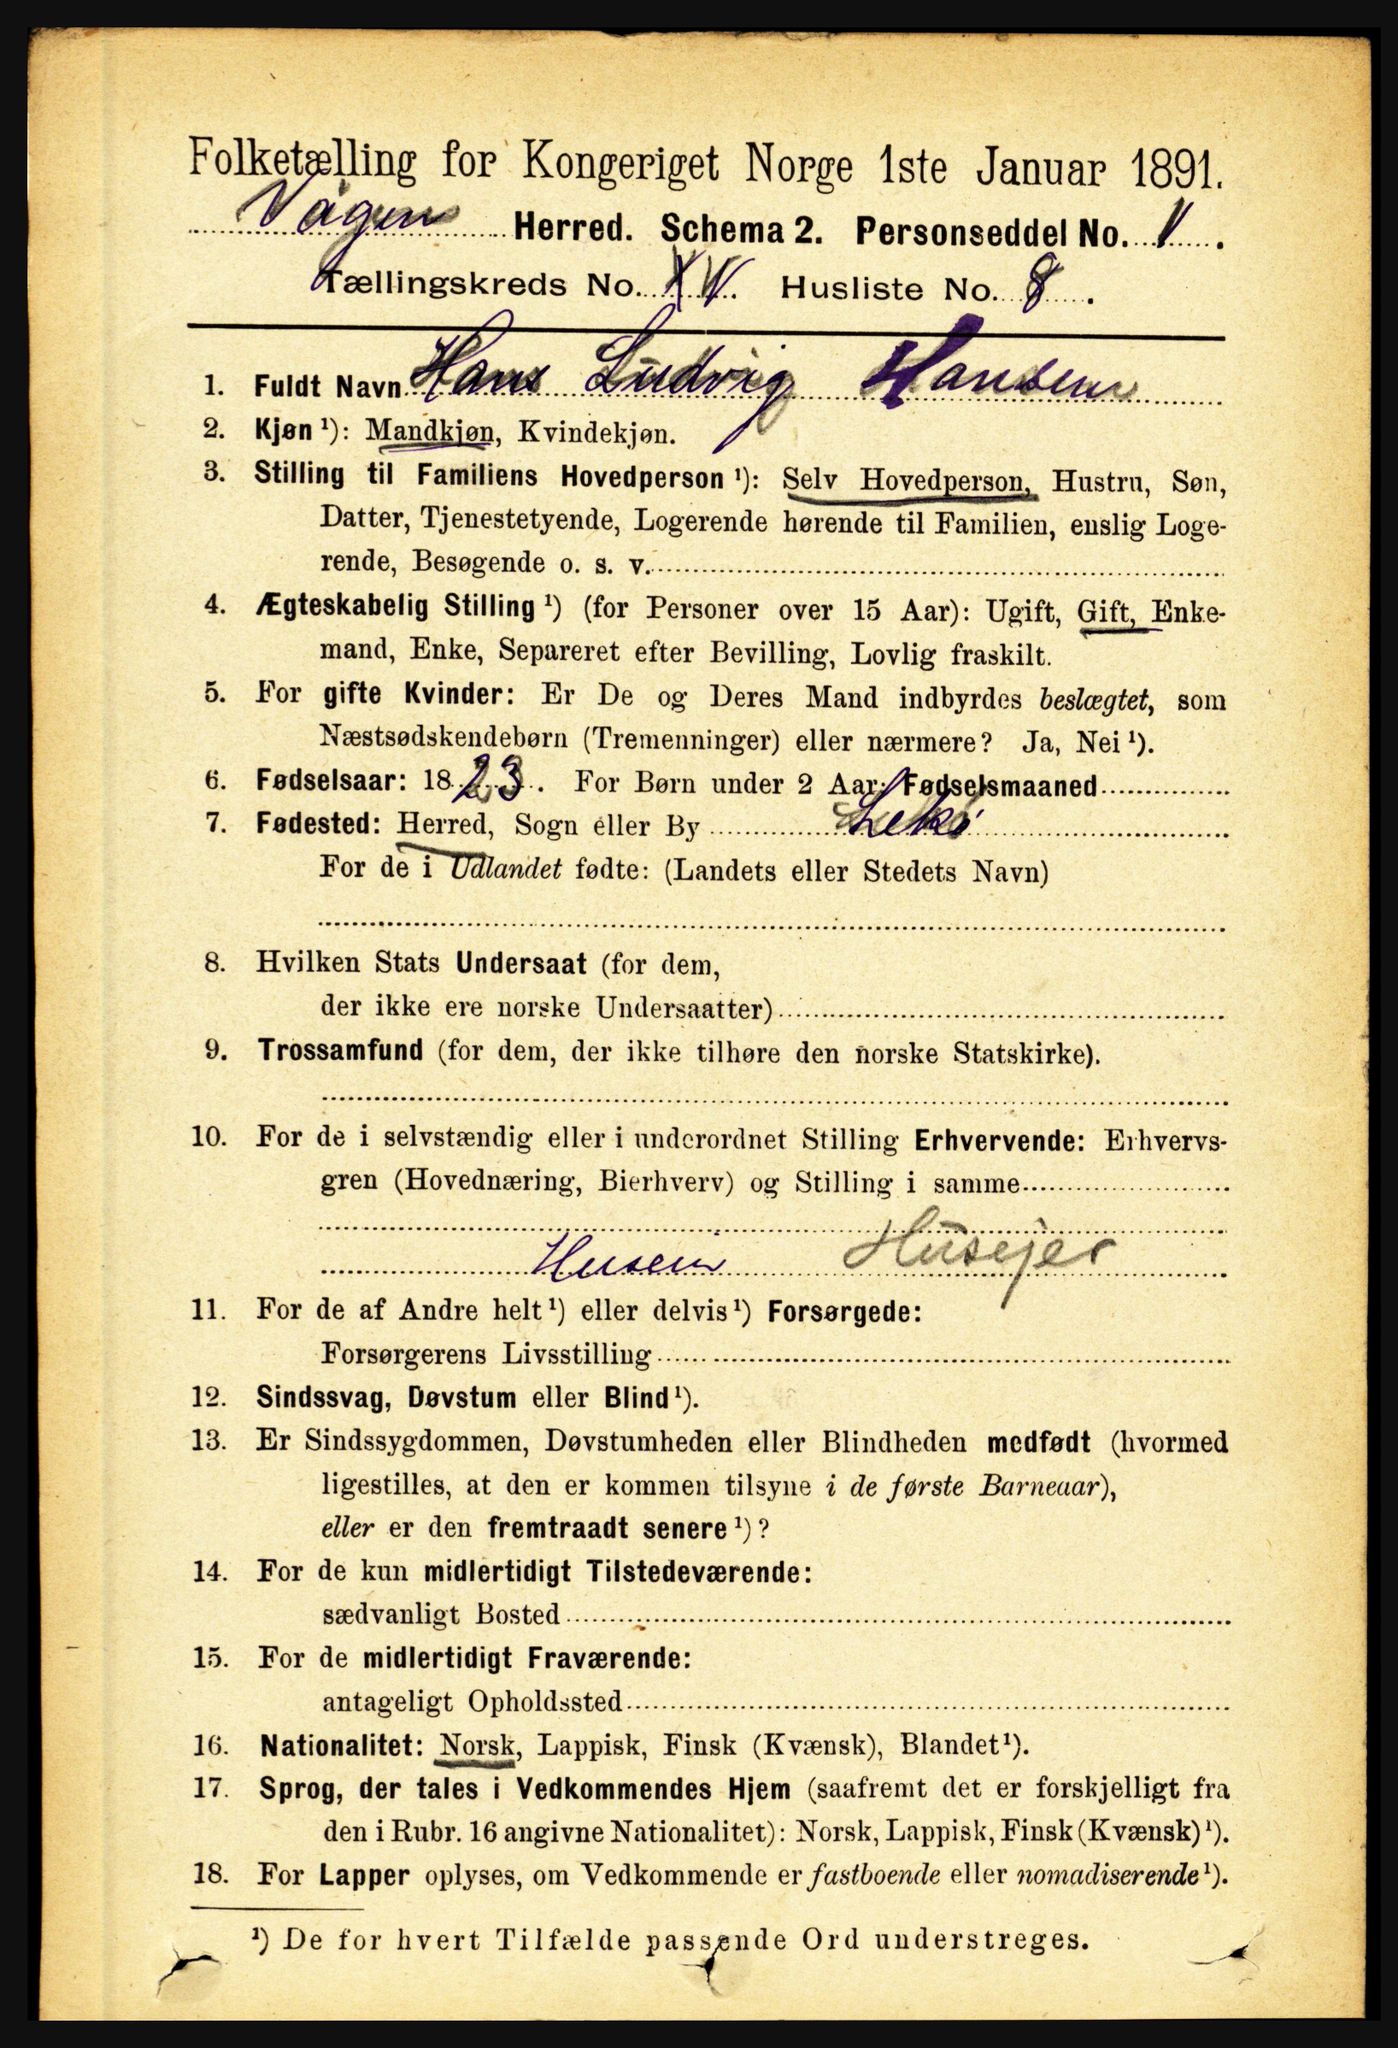 Folketælling for Kongeriget Norge 1ste Januar 1891.
Vågen Herred. Schema 2. Personseddel No. 1.
Tællingskreds No. XV. Husliste No. 8.
1. Fuldt Navn Hans Ludvig Hansen
2. Kjøn ¹): Mandkjøn, Kvindekjøn.
3. Stilling til Familiens Hovedperson ¹): Selv Hovedperson, Hustru, Søn,
Datter, Tjenestetyende, Logerende hørende til Familien, enslig Loge-
rende, Besøgende o. s. v.
4. Ægteskabelig Stilling ¹) (for Personer over 15 Aar): Ugift, Gift, Enke-
mand, Enke, Separeret efter Bevilling, Lovlig fraskilt.
5. For gifte Kvinder: Er De og Deres Mand indbyrdes beslægtet, som
Næstsødskendebørn (Tremenninger) eller nærmere? Ja, Nei ¹).
6. Fødselsaar: 1823. For Børn under 2 Aar: Fødselsmaaned
7. Fødested: Herred, Sogn eller By Lekø
For de i Udlandet fødte: (Landets eller Stedets Navn)
8. Hvilken Stats Undersaat (for dem,
der ikke ere norske Undersaatter)
9. Trossamfund (for dem, der ikke tilhøre den norske Statskirke).
10. For de i selvstændig eller i underordnet Stilling Erhvervende: Erhvervs-
gren (Hovednæring, Bierhverv) og Stilling i samme
Huseir Husejer
11. For de af Andre helt ¹) eller delvis ¹) Forsørgede:
Forsørgerens Livsstilling
12. Sindssvag, Døvstum eller Blind ¹).
13. Er Sindssygdommen, Døvstumheden eller Blindheden medfødt (hvormed
ligestilles, at den er kommen tilsyne i de første Barneaar),
eller er den fremtraadt senere ¹)?
14. For de kun midlertidigt Tilstedeværende:
sædvanligt Bosted
15. For de midlertidigt Fraværende:
antageligt Opholdssted
16. Nationalitet: Norsk, Lappisk, Finsk (Kvænsk), Blandet ¹).
17. Sprog, der tales i Vedkommendes Hjem (saafremt det er forskjelligt fra
den i Rubr. 16 angivne Nationalitet): Norsk, Lappisk, Finsk (Kvænsk) ¹).
18. For Lapper oplyses, om Vedkommende er fastboende eller nomadiserende ¹).
¹) De for hvert Tilfælde passende Ord understreges.